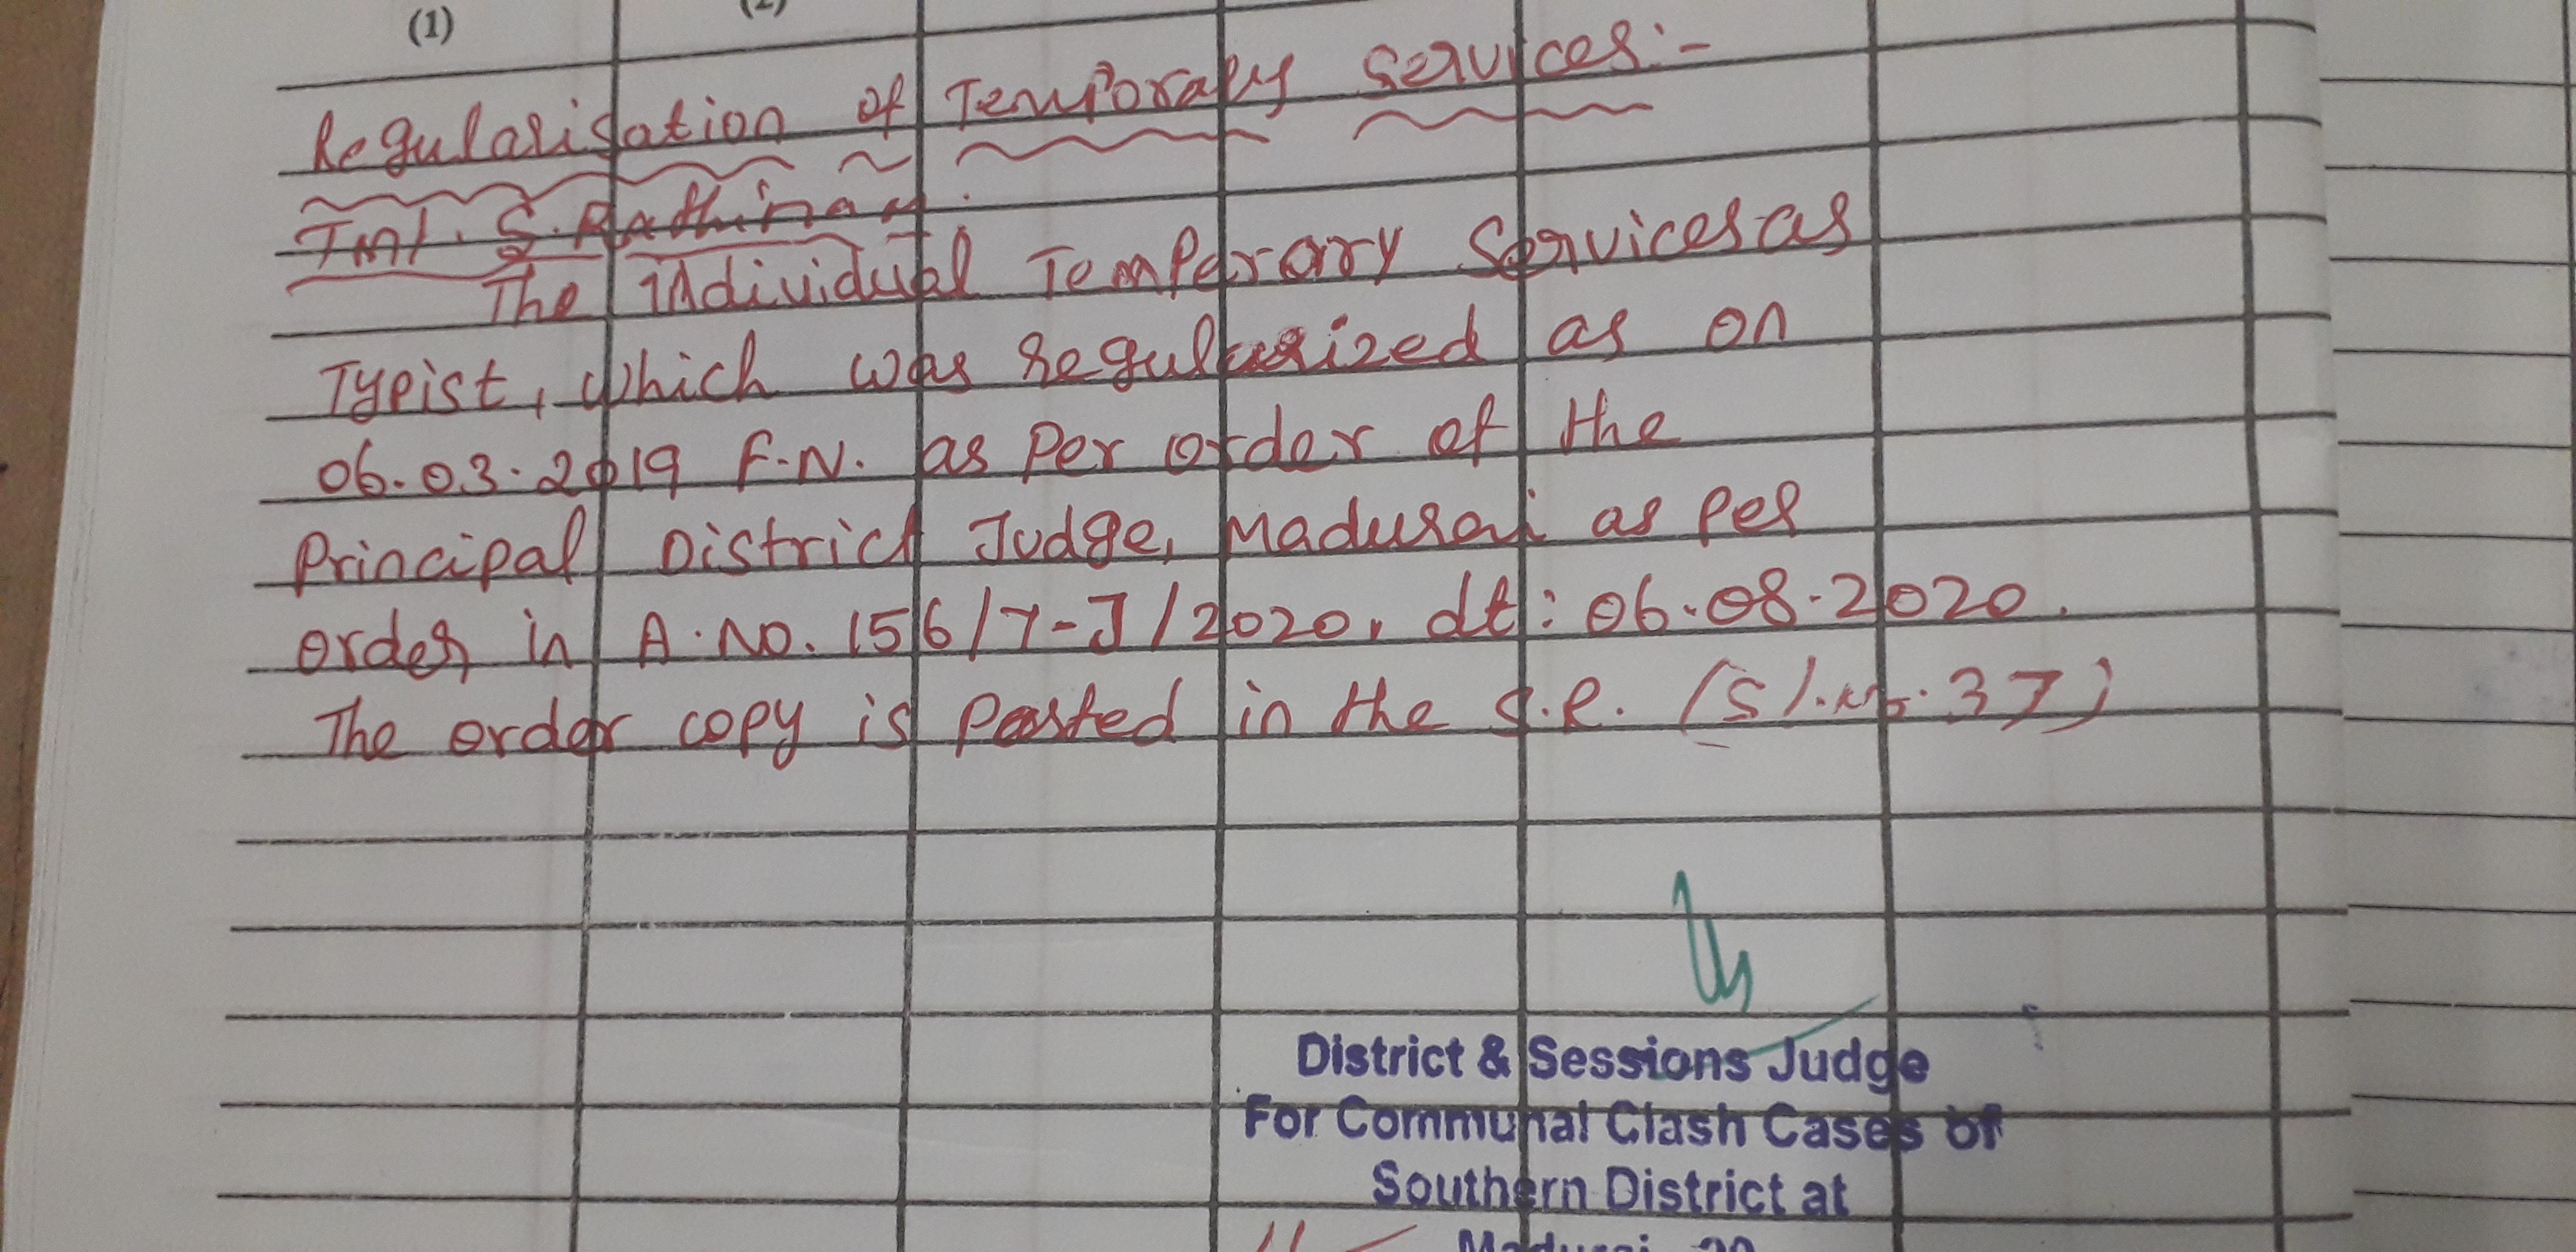 (1)
(2)
Regularisation of Temporary Services:-
Tmt. S. Rathina
The individual Temporary Services as
Typist, which was regularized as on
06.03.2019 F.N. as per order of the
Principal District Judge, Madurai as per
order in A.No. 156/7-J/2020, dt: 06.08.2020.
The order copy is pasted in the S.R. (Sl.No.37)
District & Sessions Judge
For Communal Clash Cases of
Southern District at
Madurai 20